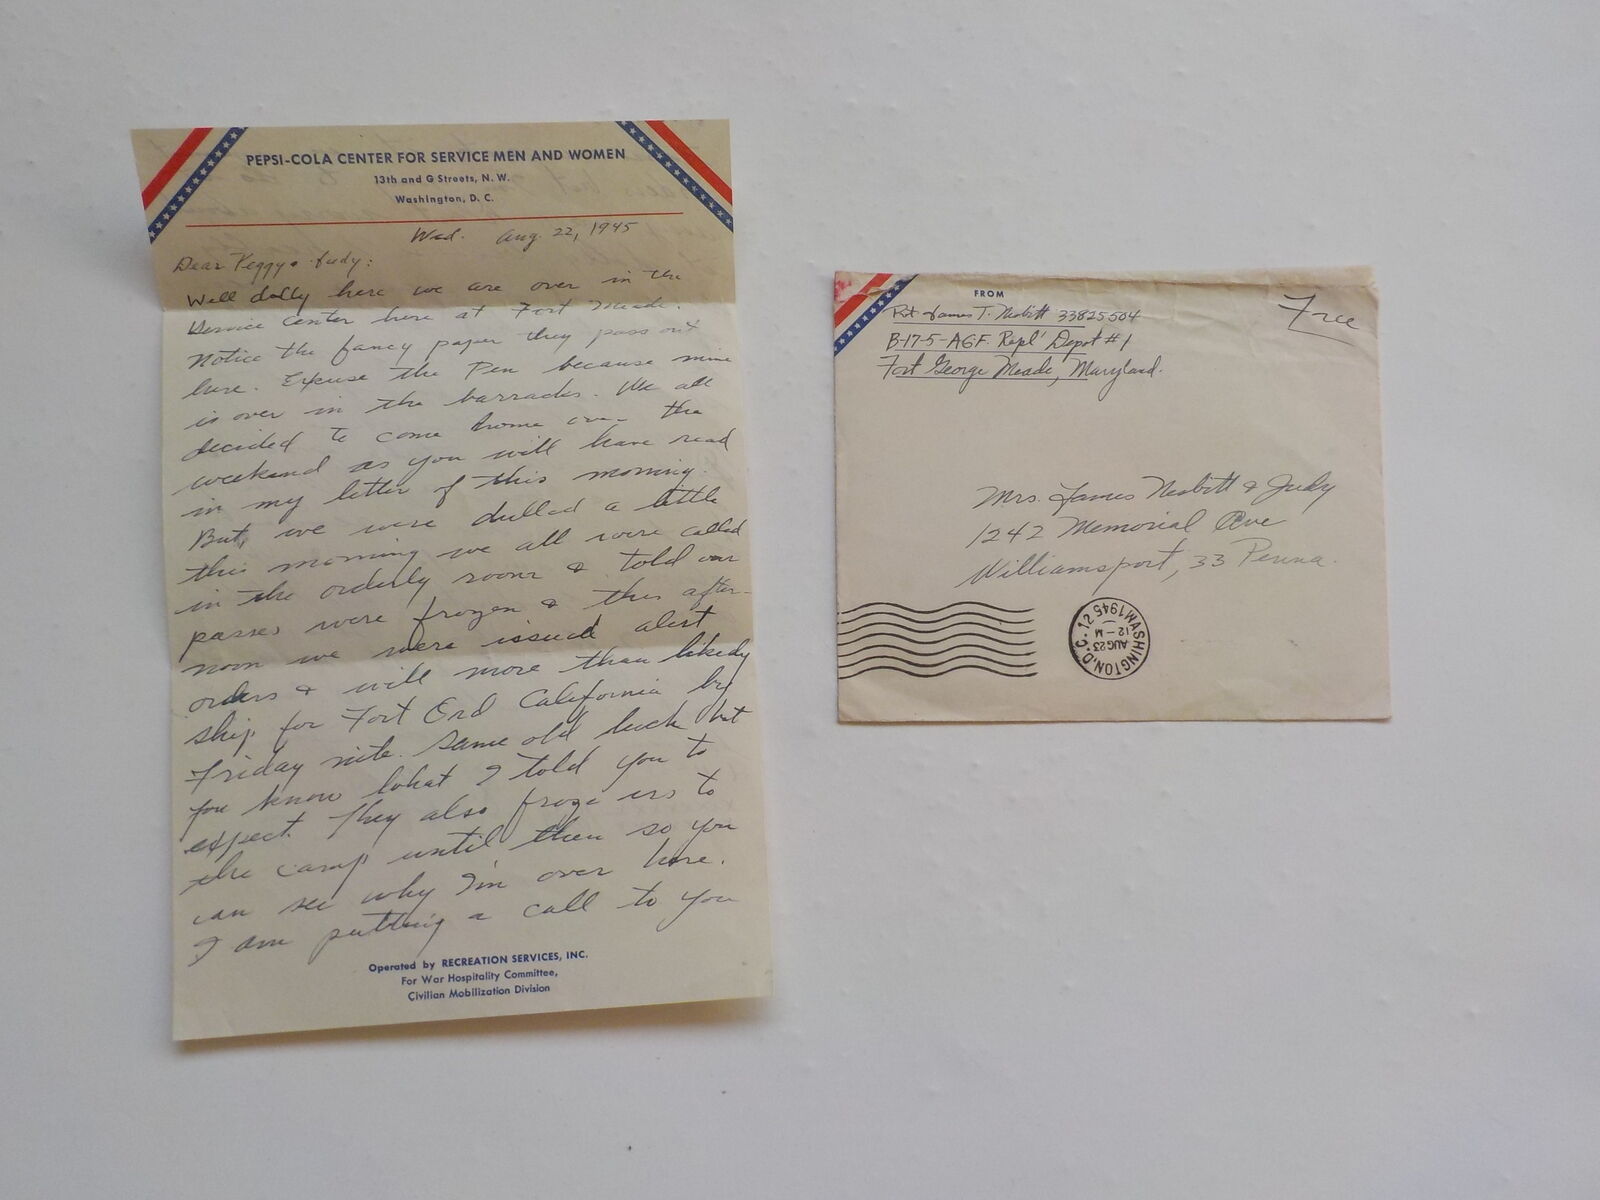 PEPSI-COLA CENTER FOR SERVICE MEN AND WOMEN
13th and G Streets, N. W.
Washington, D. C.
Wed. Aug. 22, 1945
Dear Peggy & Judy:
Well dolly here we are over in the
Service Center here at Fort Meade.
Notice the fancy paper they pass out
here. Excuse the Pen because mine
is over in the barracks. We all
decided to come home over the
weekend as you will have read
in my letter of this morning.
But, we were dulled a little
this morning we all were called
in the orderly room & told our
passes were frozen & this after-
noon we were issued alert
orders & will more than likely
ship for Fort Ord California by
Friday nite. Same old luck but
you know what I told you to
expect. They also froze us to
the camp until then so you
can see why I'm over here.
I am putting a call to you
Operated by RECREATION SERVICES, INC.
For War Hospitality Committee,
Civilian Mobilization Division
FROM
Pvt James T. Nesbitt 33825504
B-17-5-AGF Repl' Depot #1
Fort George Meade, Maryland.
Free
Mrs. James Nesbitt & Judy
1242 Memorial Ave
Williamsport, 33 Penna.
WASHINGTON, D.C. 12
AUG 23
12 - M
1945